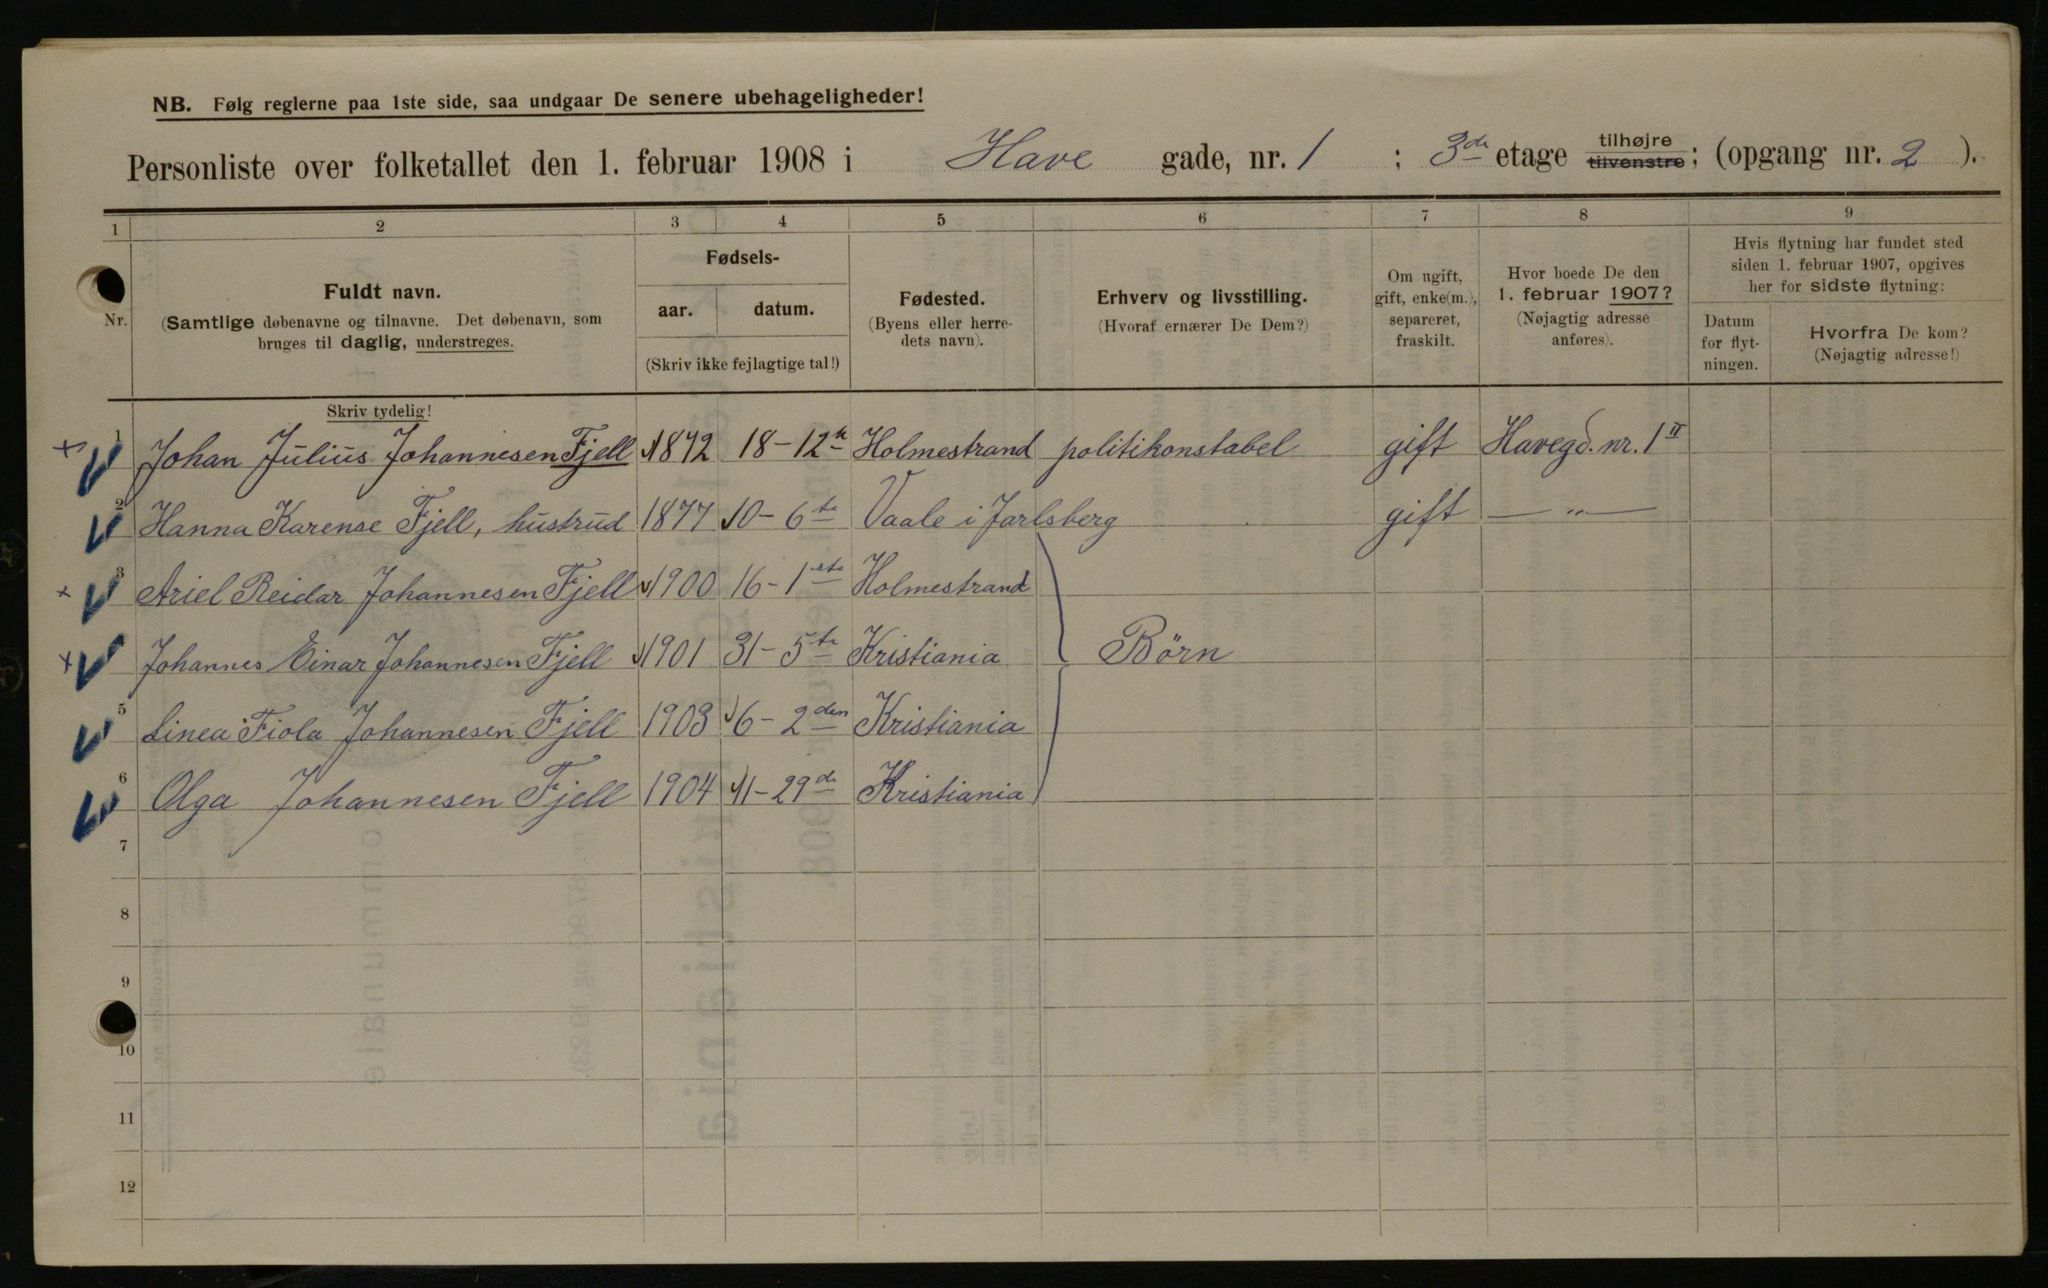 NB. Følg reglerne paa 1ste side, saa undgaar De senere ubehageligheder!
Personliste over folketallet den 1. februar 1908 i Have gade, nr. 1 ; 3de etage tilhøjre tilvenstre; (opgang nr. 2 ).
1 2 3 4 5 6 7 8 9
Nr.
Fuldt navn.
(Samtlige døbenavne og tilnavne. Det døbenavn, som
bruges til daglig, understreges.
Fødsels-
aar. datum.
(Skriv ikke fejlagtige tal!)
Fødested.
(Byens eller herre-
dets navn).
Erhverv og livsstilling.
(Hvoraf ernærer De Dem?)
Om ugift,
gift, enke(m.),
separeret,
fraskilt.
Hvor boede De den
1. februar 1907?
(Nøjagtig adresse
anføres).
Hvis flytning har fundet sted
siden 1. februar 1907, opgives
her for sidste flytning:
Datum
for flyt-
ningen.
Hvorfra De kom?
(Nøjagtig adresse!)
Skriv tydelig!
1 Johan Julius Johannesen Fjell 1872 18-12te Holmestrand politikonstabel gift Havegd. nr. 1 II
2 Hanna Karense Fjell, hustrud 1877 10-6te Vaale i Jarlsberg gift — „ —
3 Ariel Reidar Johannesen Fjell 1900 16-1ste Holmestrand
Johannes Einar Johannesen Fjell 1901 31-5te Kristiania Börn
5 Linea Fiola Johannesen Fjell 1903 6-2den Kristiania
6 Olga Johannesen Fjell 1904 11-29de Kristiania
7
8
9
10
11
12